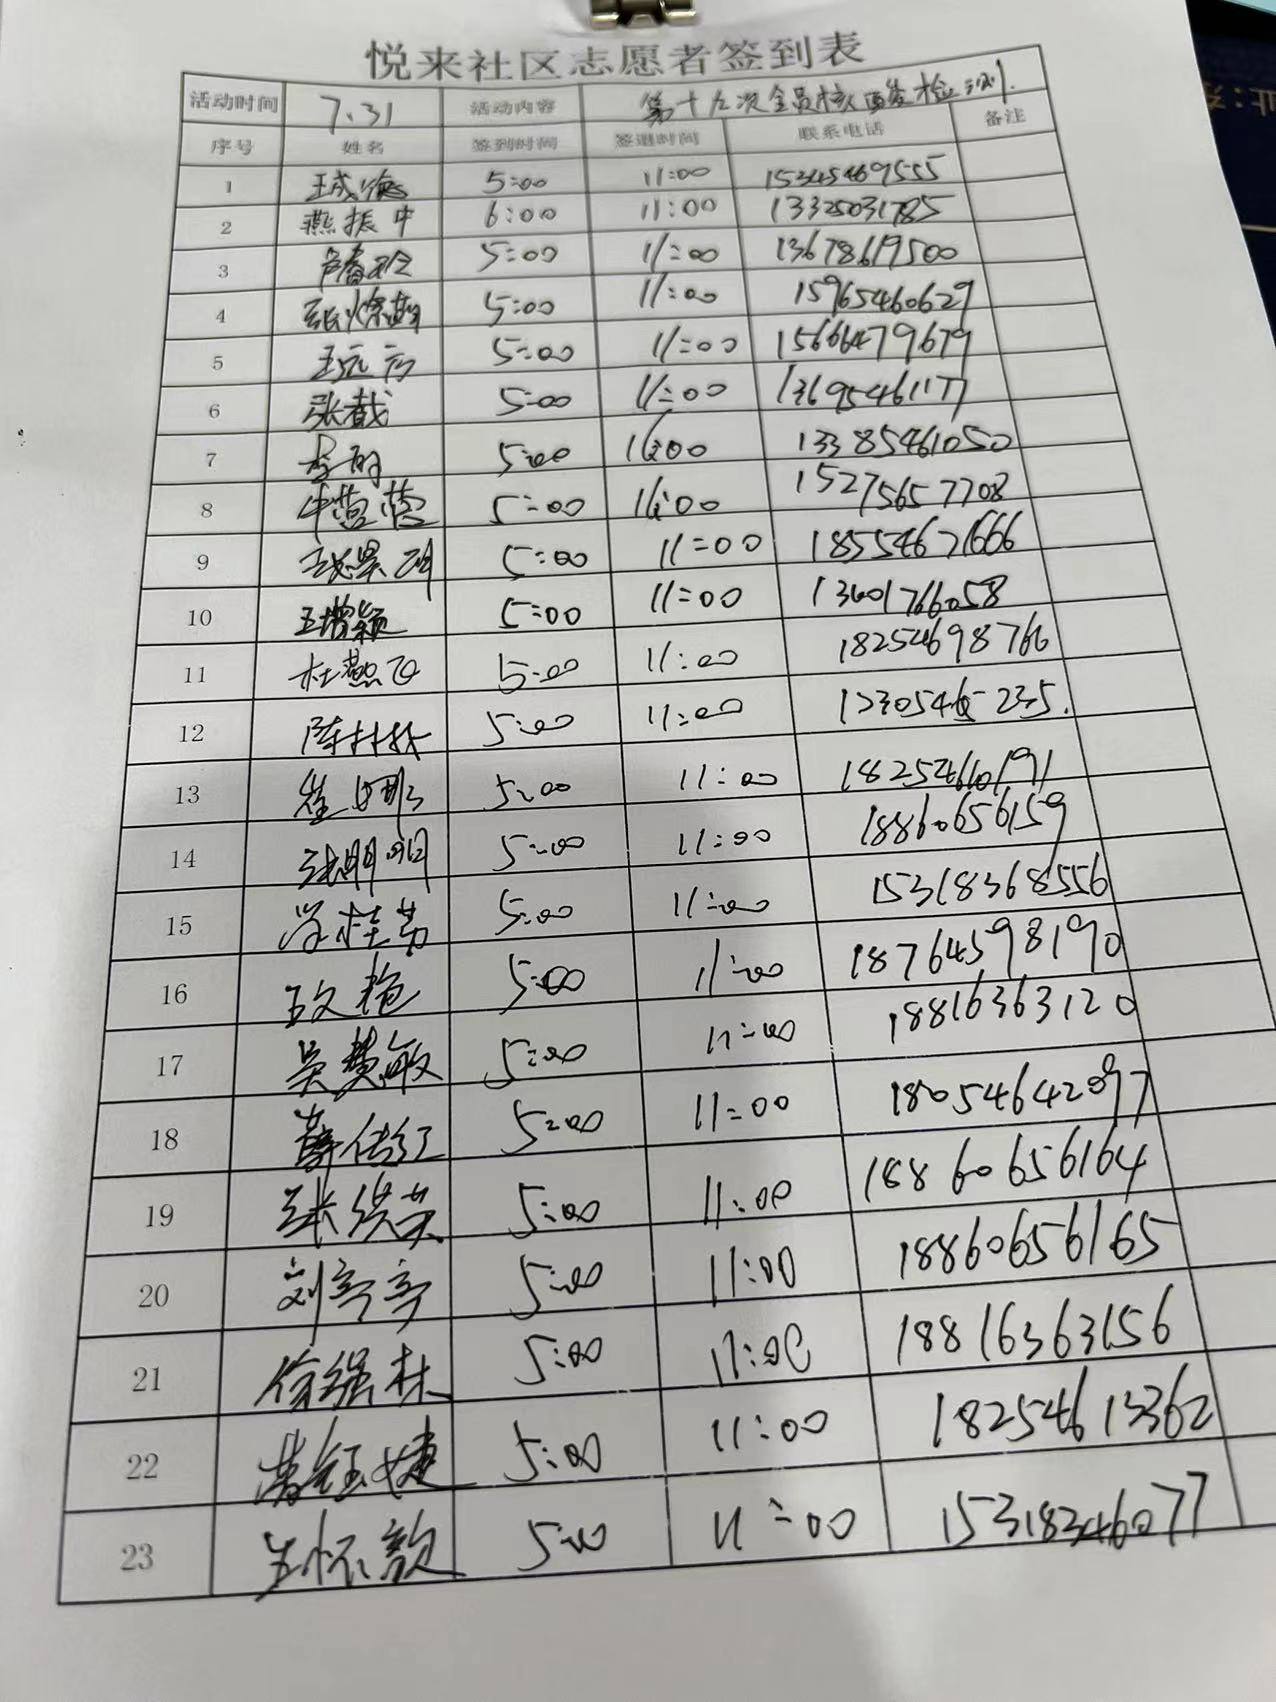 悦来社区志愿者签到表
活动时间 7.31 活动内容 第十九次全员核酸检测
序号 姓名 签到时间 签退时间 联系电话 备注
1 5:00 11:00 15345469555
2 燕振中 6:00 11:00 13325031785
3 5:00 11:00 13678619500
4 5:00 11:00 15965460629
5 5:00 11:00 15666479679
6 张截 5:00 11:00 13695461177
7 5:00 11:00 13385461050
8 牛蓝蓝 5:00 11:00 15275657708
9 5:00 11:00 18554671666
10 王增颖 5:00 11:00 13601766058
11 杜燕飞 5:00 11:00 18254698766
12 陈林林 5:00 11:00
13 崔娜 5:00 11:00 18254660191
14 张明明 5:00 11:00 18860656159
15 5:00 11:00 15318368556
16 王文艳 5:00 11:00 18764598190
17 吴慧敏 5:00 11:00 18816363120
18 薛传红 5:00 11:00 18054642097
19 张洪英 5:00 11:00 18860656164
20 刘亭亭 5:00 11:00 18860656165
21 徐强林 5:00 11:00 18816363156
22 5:00 11:00 18254613362
23 王怀敏 5:00 11:00 15318346077